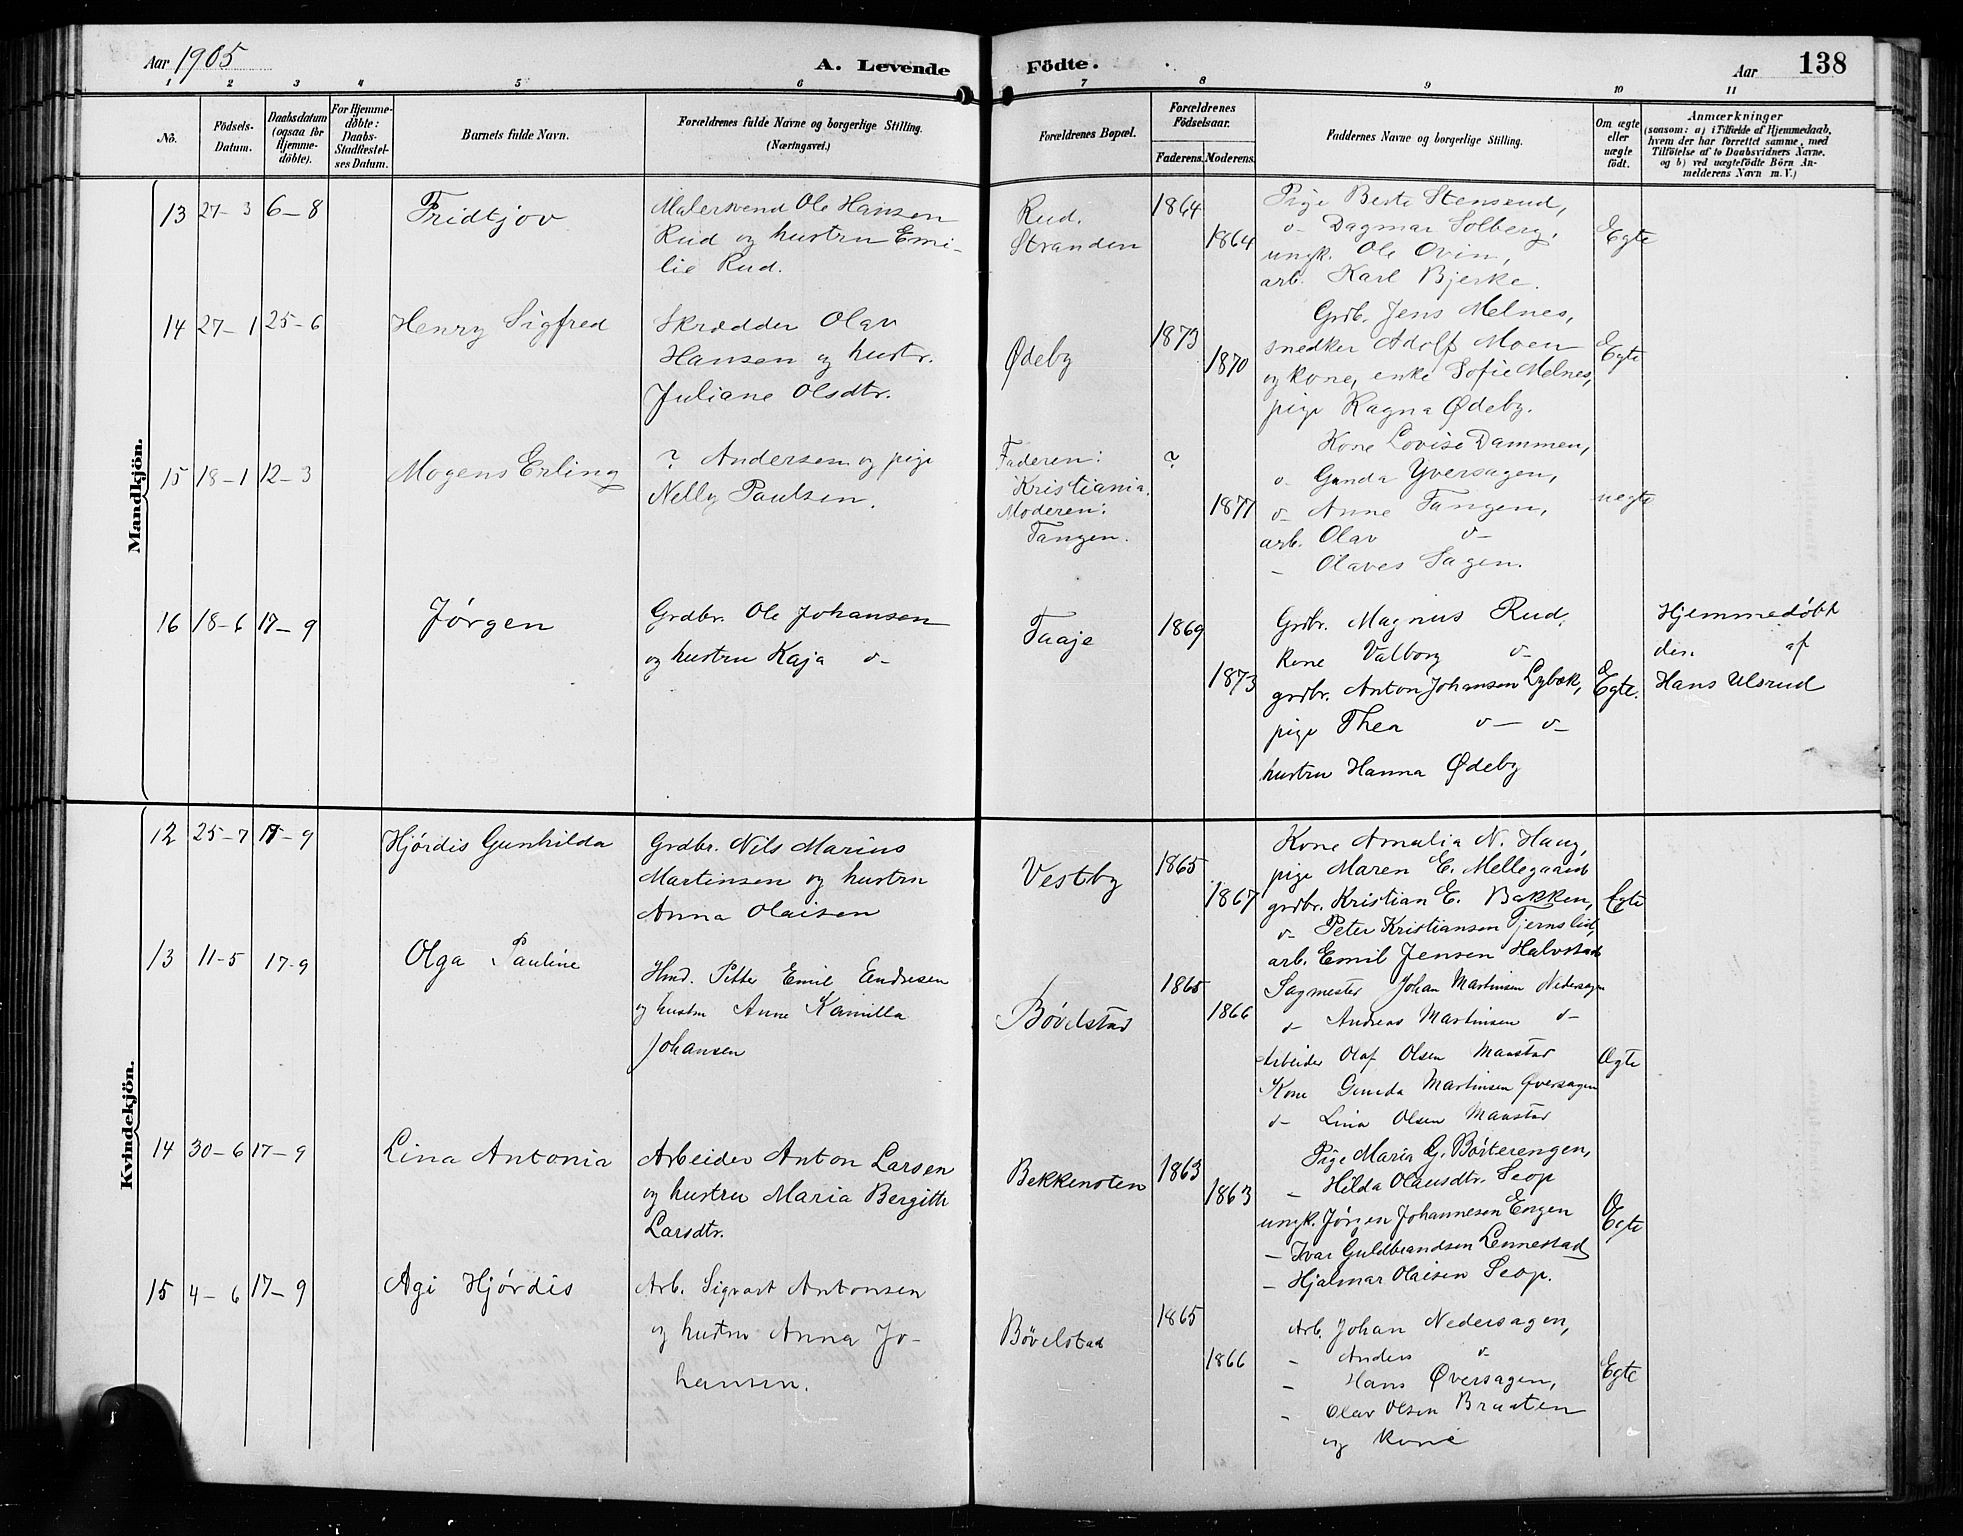 Aar 1905
A. Levende Födte.
Aar 138
1 2 3 4 5 6 7 8 9 10 11
No.
Födsels-
Datum.
Daabsdatum
(ogsaa for
Hjemme-
döbte).
For Hjemme-
döbte:
Daabs-
Stadfæstel-
ses Datum.
Barnets fulde Navn.
Forældrenes fulde Navne og borgerlige Stilling.
(Næringsvei.)
Forældrenes Bopæl.
Forældrenes
Födselsaar.
Faderens. Moderens.
Faddernes Navne og borgerlige Stilling.
Om ægte
eller
uægte
födt.
Anmærkninger
(saasom: a) i Tilfælde af Hjemmedaab,
hvem der har forrettet samme, med
Tilföielse af to Daabsvidners Navne,
og b) ved uægtefödte Börn An-
melderens Navn m. V.)
Mandkjön.
13 27-3 6-8
Fridtjov
Malersvend Ole Hansen
Rud og hustru Emi-
lie Rud.
Rud.
Stranden
1864
1864
Pige Berte Stensrud,
d- Dagmar Solberg,
ungk. Ole Ovin,
arb. Karl Bjerke.
Egte
14 27-1 25-6
Henry Sigfred
Skrædder Olav
Hansen og hustr.
Juliane Olsdtr.
Ødeby
1873
1870
Grdb. Jens Melnes,
snedker Adolf Moen
og kone, enke Sofie Melnes,
pige Ragna Ødeby.
Egte
15 18-1 12-3
Mogens Erling
? Andersen og pige
Nelly Paulsen.
Faderen:
Kristiania.
Moderen:
Tangen.
?
1877
Kone Lovise Dammen,
d- Gunda Yversagen,
d- Anne Tangen,
arb. Olav d-
- Olaves Sagen.
uegte
16 18-6 17-9
Jørgen
Grdbr. Ole Johansen
og hustru Kaja d-
Taaje
1869
1873
Grdbr. Magnus Rud,
kone Valborg d-
grdbr. Anton Johansen Lybæk,
pige Thea d- d-
hustru Hanna Ødeby
Egte.
Hjemmedøbt
den af
Hans Ulsrud
Kvindekjön.
12 25-7 17-9
Hjørdis Gunhilda
Grdbr. Nils Marius
Martinsen og hustru
Anna Olaisen
Vestby
1865
1867
Kone Amalia N. Haug,
pige Maren E. Mellegaard
grdbr. Kristian E. Bakken,
d- Peter Kristiansen Tjernslid,
arb. Emil Jensen Halvstad
Egte
13 11-5 17-9
Olga Pauline
Hmd. Petter Emil Endresen
og hustru Anne Kamilla
Johansen
Bøvelstad
1865
1866
Sagmester Johan Martinsen Nedersagen
d- Andreas Martinsen d-
Arbeider Olaf Olsen Maastad
Kone Gunda Martinsen Øversagen
d- Lina Olsen Maastad
Ægte
14 30-6 17-9
Lina Antonia
Arbeider Anton Larsen
og hustru Maria Bergitte
Larsdtr.
Bekkenoten
1863
1863
Pige Maria G. Børterengen,
- Hilda Olausdtr. Seop
ungk. Jørgen Johannesen Engen
- Ivar Guldbrandsen Lennestad
- Hjalmar Olaisen Seop.
Egte
15 4-6 17-9
Agi Hjørdis
Arb. Sigvart Antonsen
og hustru Anna Jo-
hansen.
Bøvelstad
1865
1866
Arb. Johan Nedersagen,
- Anders d-
- Hans Øversagen,
- Olav Olsen Braaten
og kone
Egte